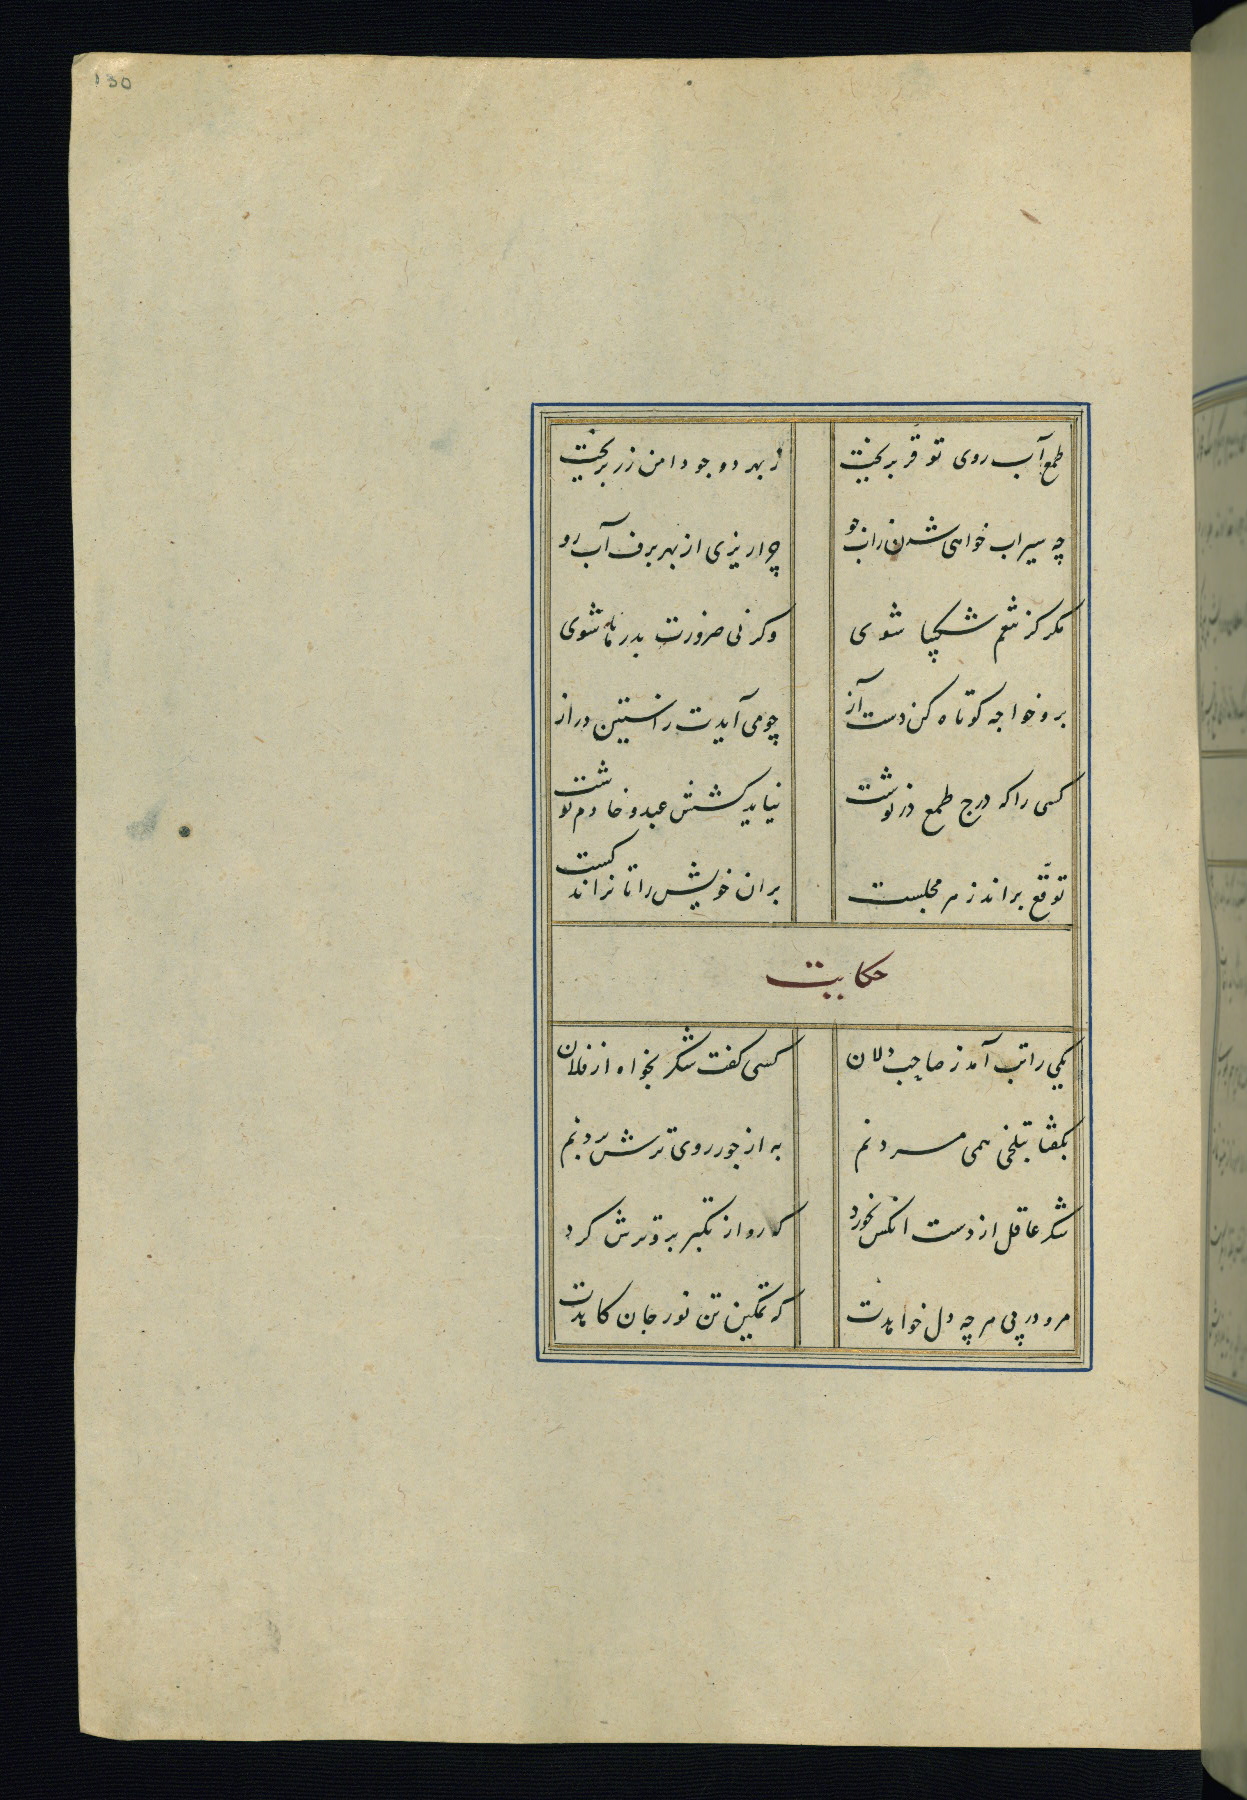 130
طمع آب روی توقر بریخت ز بهر دو جو دامن زر بریخت
چه سیراب خواهی شدن زاب جو چرا ریزی از بهر برف آب رو
مکر کز تنعم شکیبا شوی وکرنی ضرورت بدرها شوی
برو خواجه کوتاه کن دست آز چو می آیدت زاستین دراز
کسی را که درج طمع در نوشت نیاید کشش عبد و خادم نوشت
توقع براند ز هر مجلست بران خویش را تا نراند کست
حکایت
یکی را تب آمد ز صاحب دلان کسی کفت شکر بخواه از فلان
بکفتا بتلخی همی مردنم به از جور روی ترش بردنم
شکر عاقل از دست انکس نخورد که رو از تکبر برو ترش کرد
مرو در پی هر چه دل خواهدت که تمکین تن نور جان کاهدت